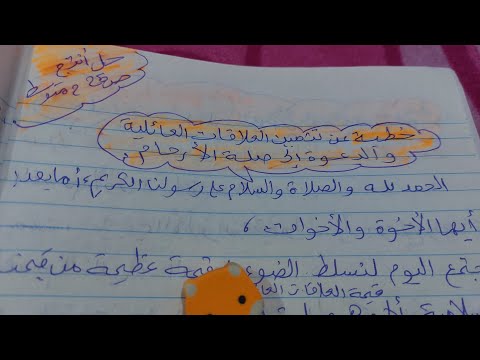 حل أنتج
ص 28 2 متوسط
خطبة عن تثمين العلاقات العائلية
والدعوة إلى صلة الأرحام
الحمد لله والصلاة والسلام على رسولنا الكريم، أما بعد:
أيها الأخوة والأخوات،
نجتمع اليوم لنسلط الضوء قيمة عظيمة من قيمنا
قيمة العلاقات